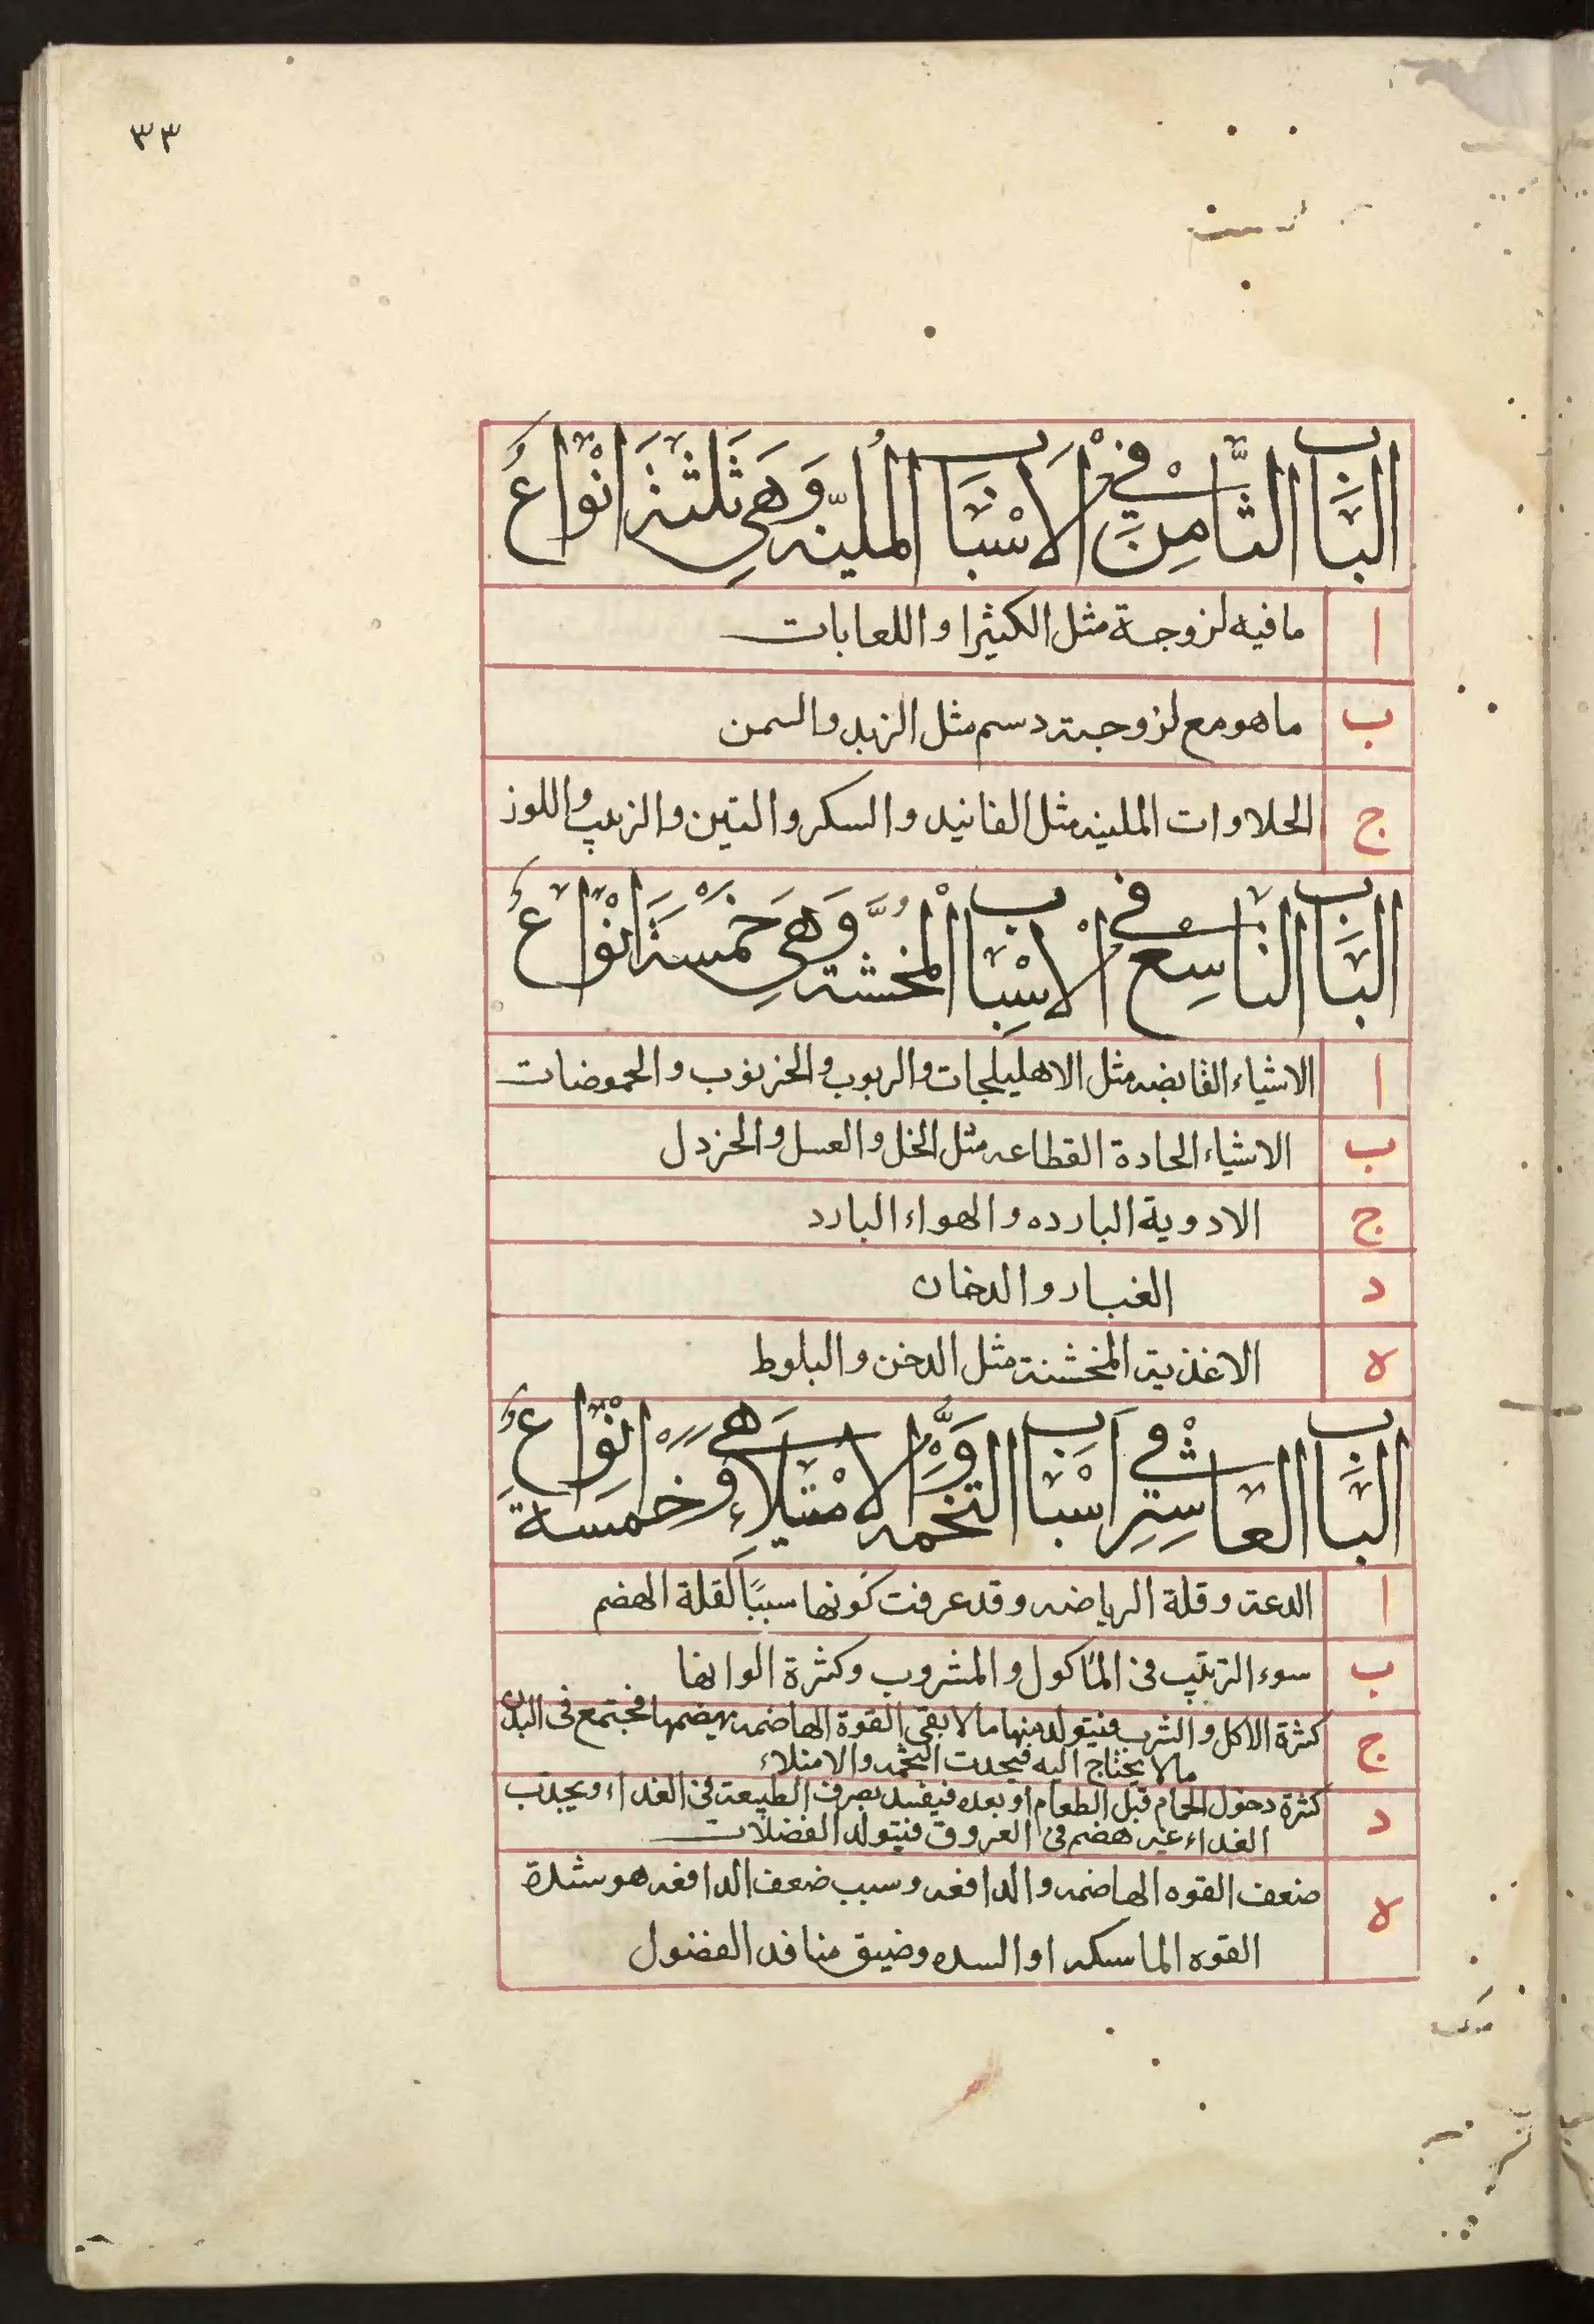 ٣٣
البَاب الثَّامِن في الاسْبَاب المُليّنه وَهي ثَلثَة انْواع
ا ما فيه لزوجة مثل الكثيرا و اللعابات
ب ما هو مع لزوجته دسم مثل الزبد والسمن
ج الحلاوات الملينه مثل الفانيد والسكر والتين والزبيب واللوز
البَاب التاسِع في الاسْبَاب المُخشّنة وَهي خَمْسَة انْواع
ا الاشياء القابضه مثل الاهليلجات والربوب والخرنوب والحموضات
ب الاشياء الحادة القطاعه مثل الخل والعسل والخردل
ج الادوية البارده والهواء البارد
د الغبار والدخان
ه الاغذية المخشنة مثل الدخن والبلوط
البَاب العَاشِر في اسْبَاب التخمه وَالامْتلاءِ وهي خمسَة انْواع
ا الدعة وقلة الرياضه وقد عرفت كونها سببًا لقلة الهضم
ب سوء الترتيب فى المأكول والمشروب وكثرة الوانها
ج كثرة الاكل والشرب فيتولد منها ما لا بقى القوة الهاضمه بهضمها فيجتمع فى البدن
ما لا يحتاج اليه فيحدث التخمه والامتلاء
د كثرة دخول الحمام قبل الطعام او بعده فيفسد تصرف الطبيعة فى الغداء ويجذب
الغداء غير هضم فى العروق فيتولد الفضلات
ه ضعف القوه الهاضمه والدافعه وسبب ضعف الدافعه هو شدة
القوه الماسكه او السده وضيق منافد الفضول